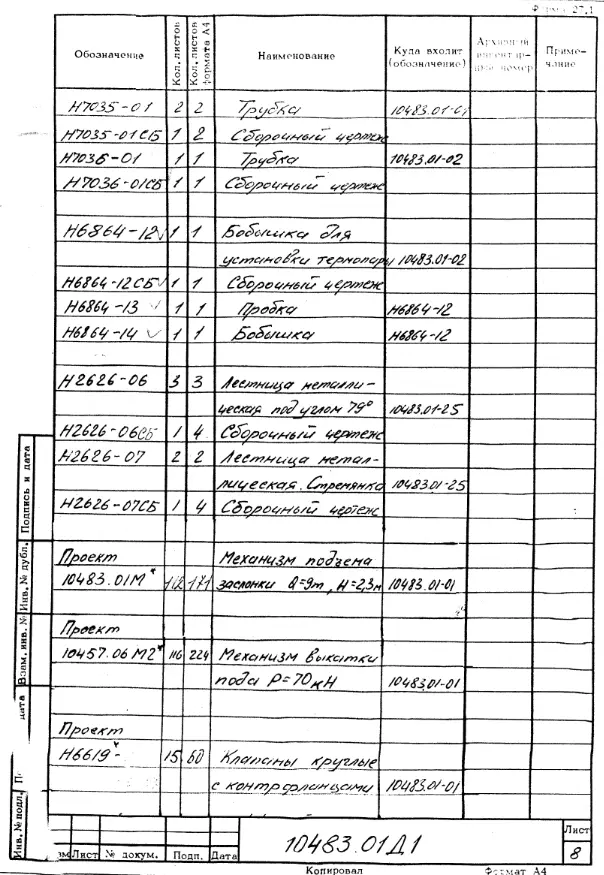 Форма 27.1
Обозначение Кол. листов Кол. листов формата А4 Наименование Куда входит (обозначение) Архивный инвентарный номер Примечание
Н7035-01 2 2 Трубка 10483.01-01
Н7035-01СБ 1 2 Сборочный чертеж
Н7036-01 1 1 Трубка 10483.01-02
Н7036-01СБ 1 1 Сборочный чертеж
Н6864-12 1 1 Бобышка для
установки термопары 10483.01-02
Н6864-12СБ 1 1 Сборочный чертеж
Н6864-13 1 1 Пробка Н6864-12
Н6864-14 1 1 Бобышка Н6864-12
Н2626-06 3 3 Лестница металли-
ческая под углом 79° 10483.01-25
Н2626-06СБ 1 4 Сборочный чертеж
Н2626-07 2 2 Лестница метал-
лическая. Стремянка 10483.01-25
Н2626-07СБ 1 4 Сборочный чертеж
Проект Механизм подъема
10483.01М* 112 171 заслонки Q=9т, Н=2,3м 10483.01-01
Проект
10457.06 М2* 116 224 Механизм выкатки
пода Р=70кН 10483.01-01
Проект
Н6619 15 60 Клапаны круглые
с контрфланцами 10483.01-01
Подпись и дата
Инв. № дубл.
Взам. инв. №
дата
Инв. № подл.
10483.01Д1
Лист
8
Лист № докум. Подп. Дата
Копировал Формат А4